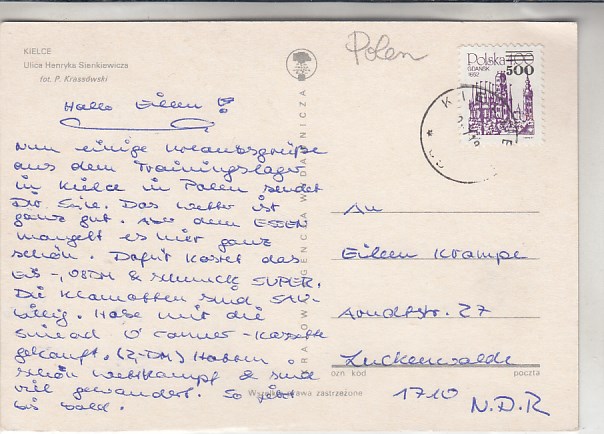 KIELCE
Ulica Henryka Sienkiewicza
fot. P. Krassowski
Polen
Polska 100
500
GDAŃSK
1652
KIELCE
Hallo Eileen !
Nun einige Urlaubsgrüße
aus dem Trainingslager
in Kielce in Polen sendet
Dir Silke. Das Wetter ist
ganz gut. Aber dem ESSEN
mangelt es hier ganz
schön. Dafür kostet das
Eis -,08DM & schmeckt SUPER.
Die Klamotten sind SAU-
billig. Habe mir die
Sinead O'Conner-Kassette
gekauft. (2,-DM) Hatten
schön Wettkampf & sind
viel gewandert. So jetzt
bis bald.
KRAJOWA AGENCJA WYDAWNICZA
An
Eileen Krampe
Arndtstr. 27
Luckenwalde
ozn. kod poczta
1710
N.D.R
Wszelkie prawa zastrzeżone